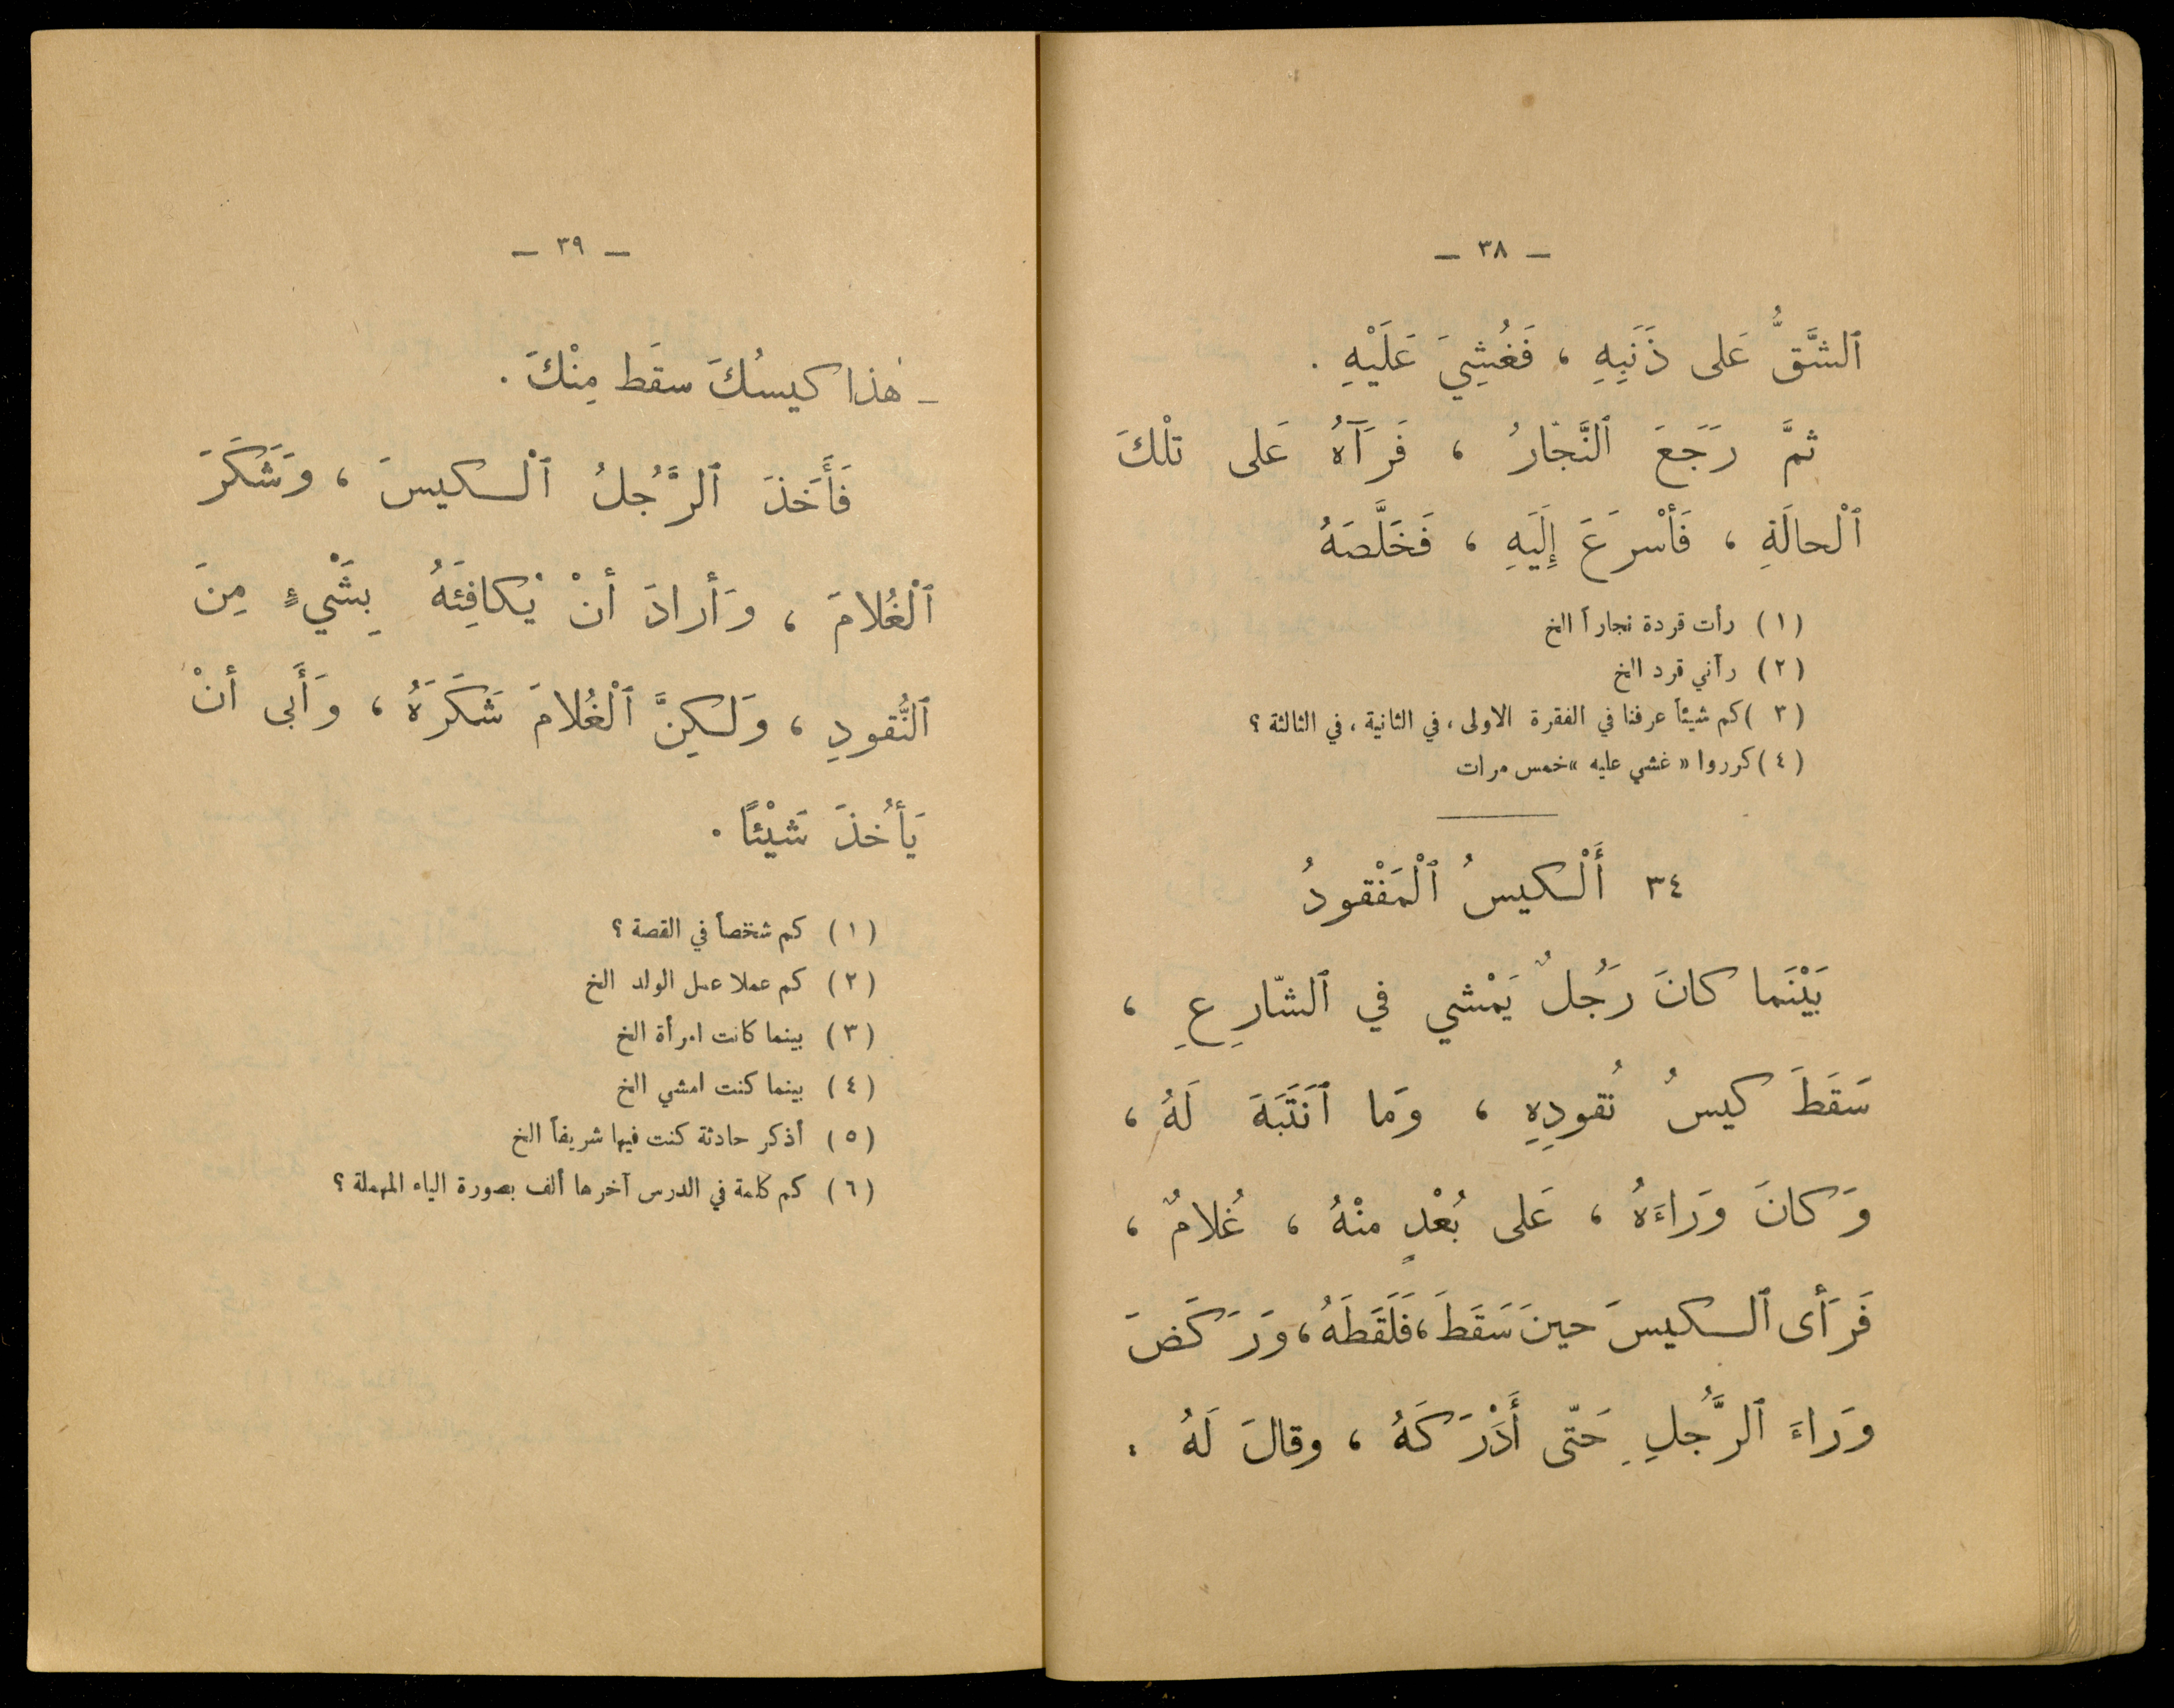 — ٣٨ —
ٱلشَّقُّ عَلى ذَنَبِهِ ، فَغُشِيَ عَلَيْهِ .
ثمَّ رَجَعَ ٱلنَّجّارُ ، فَرَآهُ عَلى تلْكَ
ٱلْحالَةِ ، فَأَسْرَعَ إِلَيَهِ ، فَخَلَّصَهُ
(١) رأت قردة نجاراً الخ
(٢) رآني قرد الخ
(٣) كم شيئاً عرفنا في الفقرة الاولى ، في الثانية ، في الثالثة ؟
(٤) كرروا « غشي عليه » خمس مرات
٣٤ أَلْكيسُ ٱلْمَفْقودُ
بَيْنَما كانَ رَجُلٌ يَمْشي في ٱلشّارِعِ ،
سَقَطَ كيسُ نُقودِهِ ، وَما ٱنَتَبَهَ لَهُ ،
وَكانَ وَراءَهُ ، عَلى بُعْدٍ منْهُ ، غُلامٌ ،
فَرَأى ٱلكيسَ حينَ سَقَطَ ، فَلَقَطَهُ ، وَرَكَضَ
وَراءَ ٱلرَّجُلِ حَتّى أَدْرَكَهُ ، وقالَ لَهُ .
— ٣٩ —
ـ هٰذا كيسُكَ سقَط مِنْكَ .
فَأَخَذَ ٱلرَّجُلُ ٱلْكيسَ ، وَشَكَرَ
ٱلْغُلامَ ، وَأرادَ أنْ يُكافِئَهُ بِشَيْءٍ مِنَ
ٱلنُّقودِ ، وَلكِنَّ ٱلْغُلامَ شَكَرَهُ ، وَأَبى أنْ
يَأخُذَ شَيْئاً .
(١) كم شخصاً في القصة ؟
(٢) كم عملا عمل الولد الخ
(٣) بينما كانت امرأة الخ
(٤) بينما كنت امشي الخ
(٥) أذكر حادثة كنت فيها شريفاً الخ
(٦) كم كلمة في الدرس آخرها ألف بصورة الياء المهملة ؟